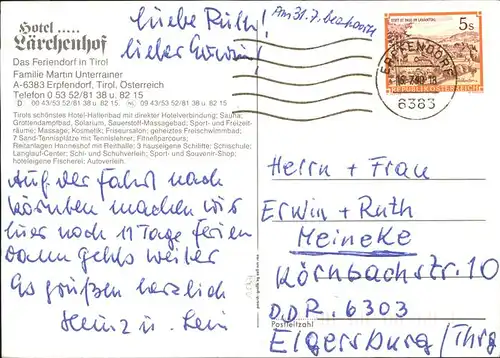 Hotel .....
Lärchenhof
Das Feriendorf in Tirol
Familie Martin Unterrainer
A-6383 Erpfendorf, Tirol, Österreich
Telefon 0 53 52/81 38 u. 82 15
D 00 43/53 52/81 38 u. 82 15 NL 09 43/53 52/81 38 u. 82 15
Tirols schönstes Hotel-Hallenbad mit direkter Hotelverbindung; Sauna;
Grottendampfbad, Solarium, Sauerstoff-Massagebad; Sport- und Freizeit-
räume; Massage; Kosmetik; Friseursalon; geheiztes Freischwimmbad;
7 Sand-Tennisplätze mit Tennislehrer, Fitneßparcours;
Reitanlagen Hannenshof mit Reithalle; 3 hauseigene Schilifte; Schischule;
Langlauf-Center; Schi- und Schuhverleih; Sport- und Souvenir-Shop;
hoteleigene Fischerei; Autoverleih.
Liebe Ruth!
lieber Erwin!
Am 31.7. beantw.
Auf der Fahrt nach
Kärnten machen wir
hier noch 11 Tage Ferien
Dann gehts weiter
Es grüßen herzlich
Heinz u.
5s
REPUBLIK ÖSTERREICH
ERPFENDORF
6383
Herrn + Frau
Erwin + Ruth
Meineke
Körnbachstr. 10
DDR. 6303
Postleitzahl
Elgersburg/Thrg